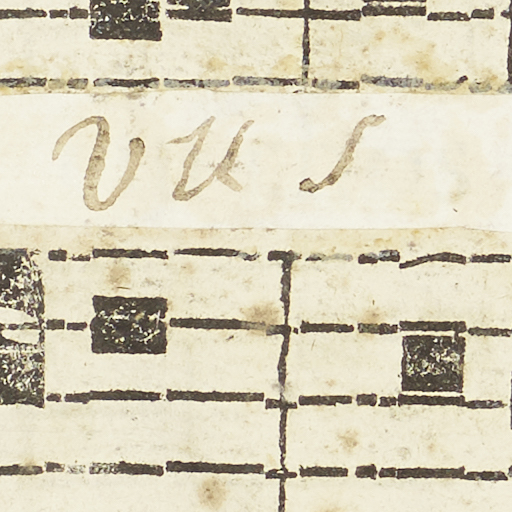 V U S